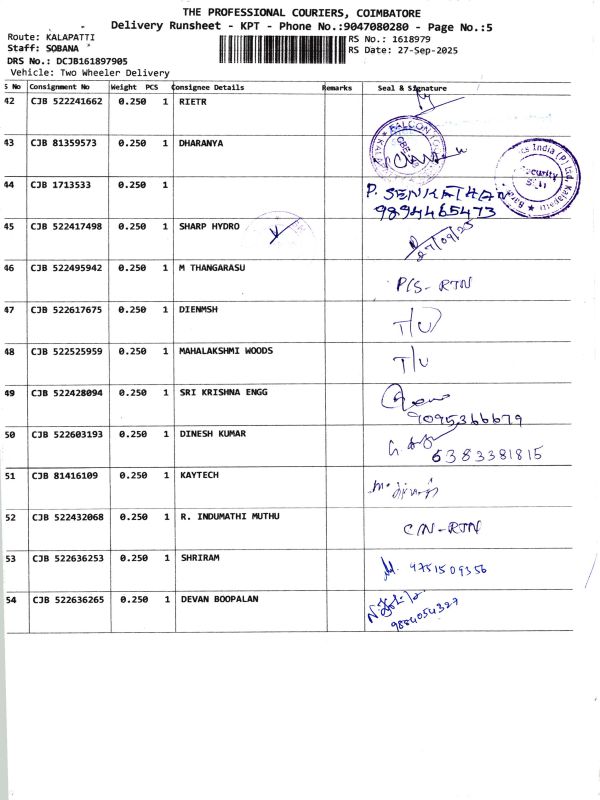 THE PROFESSIONAL COURIERS, COIMBATORE
Delivery Runsheet - KPT - Phone No.:9047080280 - Page No.:5
Route: KALAPATTI
RS No.: 1618979
Staff: SOBANA
RS Date: 27-Sep-2025
DRS No.: DCJB161897905
Vehicle: Two Wheeler Delivery
S No Consignment No Weight PCS Consignee Details Remarks Seal & Signature
42 CJB 522241662 0.250 1 RIETR
43 CJB 81359573 0.250 1 DHARANYA
44 CJB 1713533 0.250 1 P. SENKATHAN
9894465473
45 CJB 522417498 0.250 1 SHARP HYDRO 27/09/25
46 CJB 522495942 0.250 1 M THANGARASU P/S-RTN
47 CJB 522617675 0.250 1 DIENMSH T/U
48 CJB 522525959 0.250 1 MAHALAKSHMI WOODS T/U
49 CJB 522428094 0.250 1 SRI KRISHNA ENGG
9095366679
50 CJB 522603193 0.250 1 DINESH KUMAR 6383381815
51 CJB 81416109 0.250 1 KAYTECH
52 CJB 522432068 0.250 1 R. INDUMATHI MUTHU C/N-RTN
53 CJB 522636253 0.250 1 SHRIRAM 4751509356
54 CJB 522636265 0.250 1 DEVAN BOOPALAN
9884054327